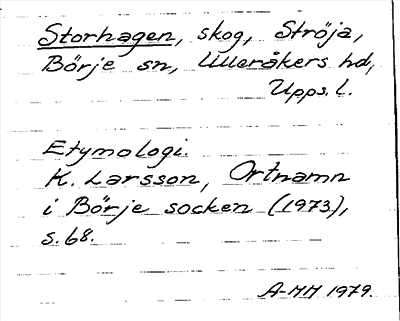 Storhagen, skog, Ströja,
Börje sn, Ulleråkers hd,
Upps. l.
Etymologi.
K. Larsson, Ortnamn
i Börje socken (1973),
s. 68.
A-MM 1979.